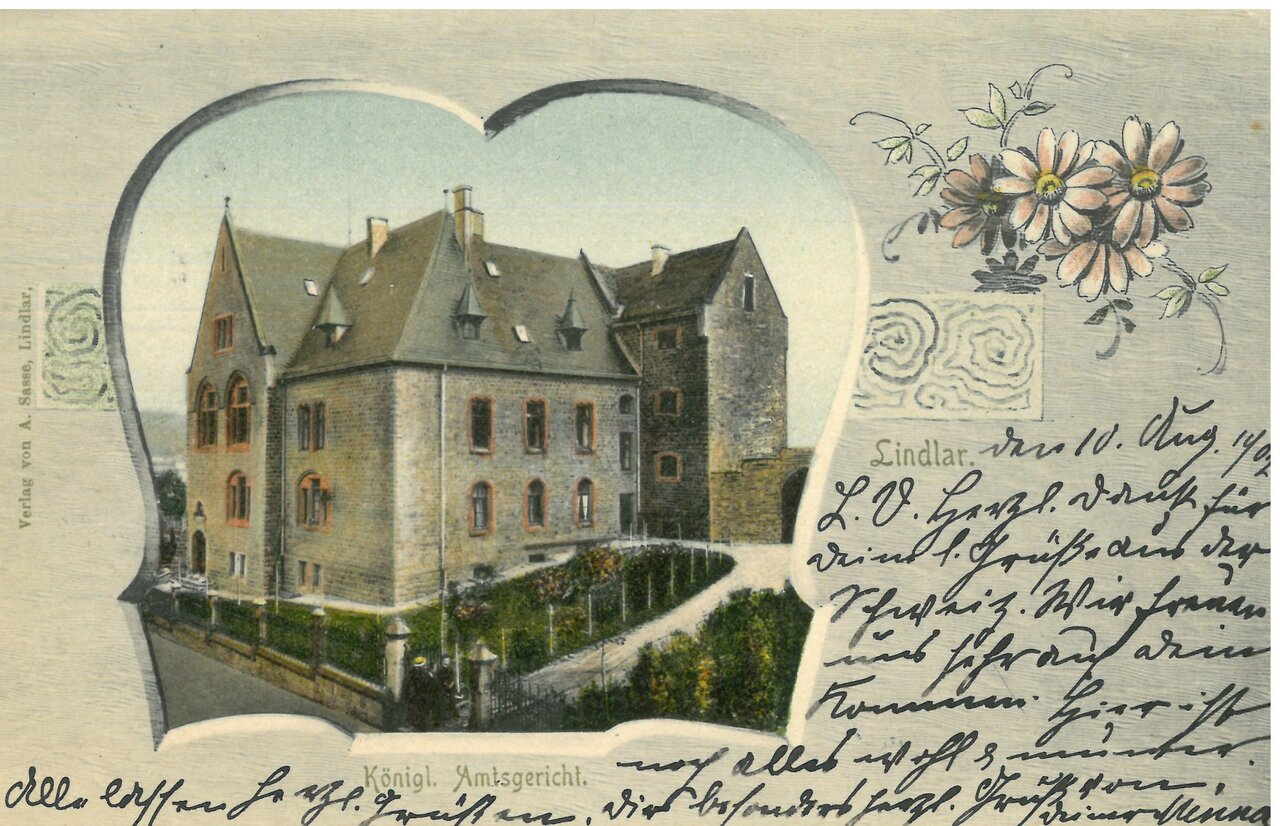 Verlag von A. Sasse, Lindlar.
Lindlar. den 10. Aug. 1902
L. V. Herzl. Dank für
deine l. Grüße aus der
Schweiz. Wir freuen
uns sehr auf dein
Kommen. Hier ist
noch alles wohl & munter.
Königl. Amtsgericht.
Alle lassen herzl. Grüßen, dir besonders herzl. Gruß von
deiner Menna